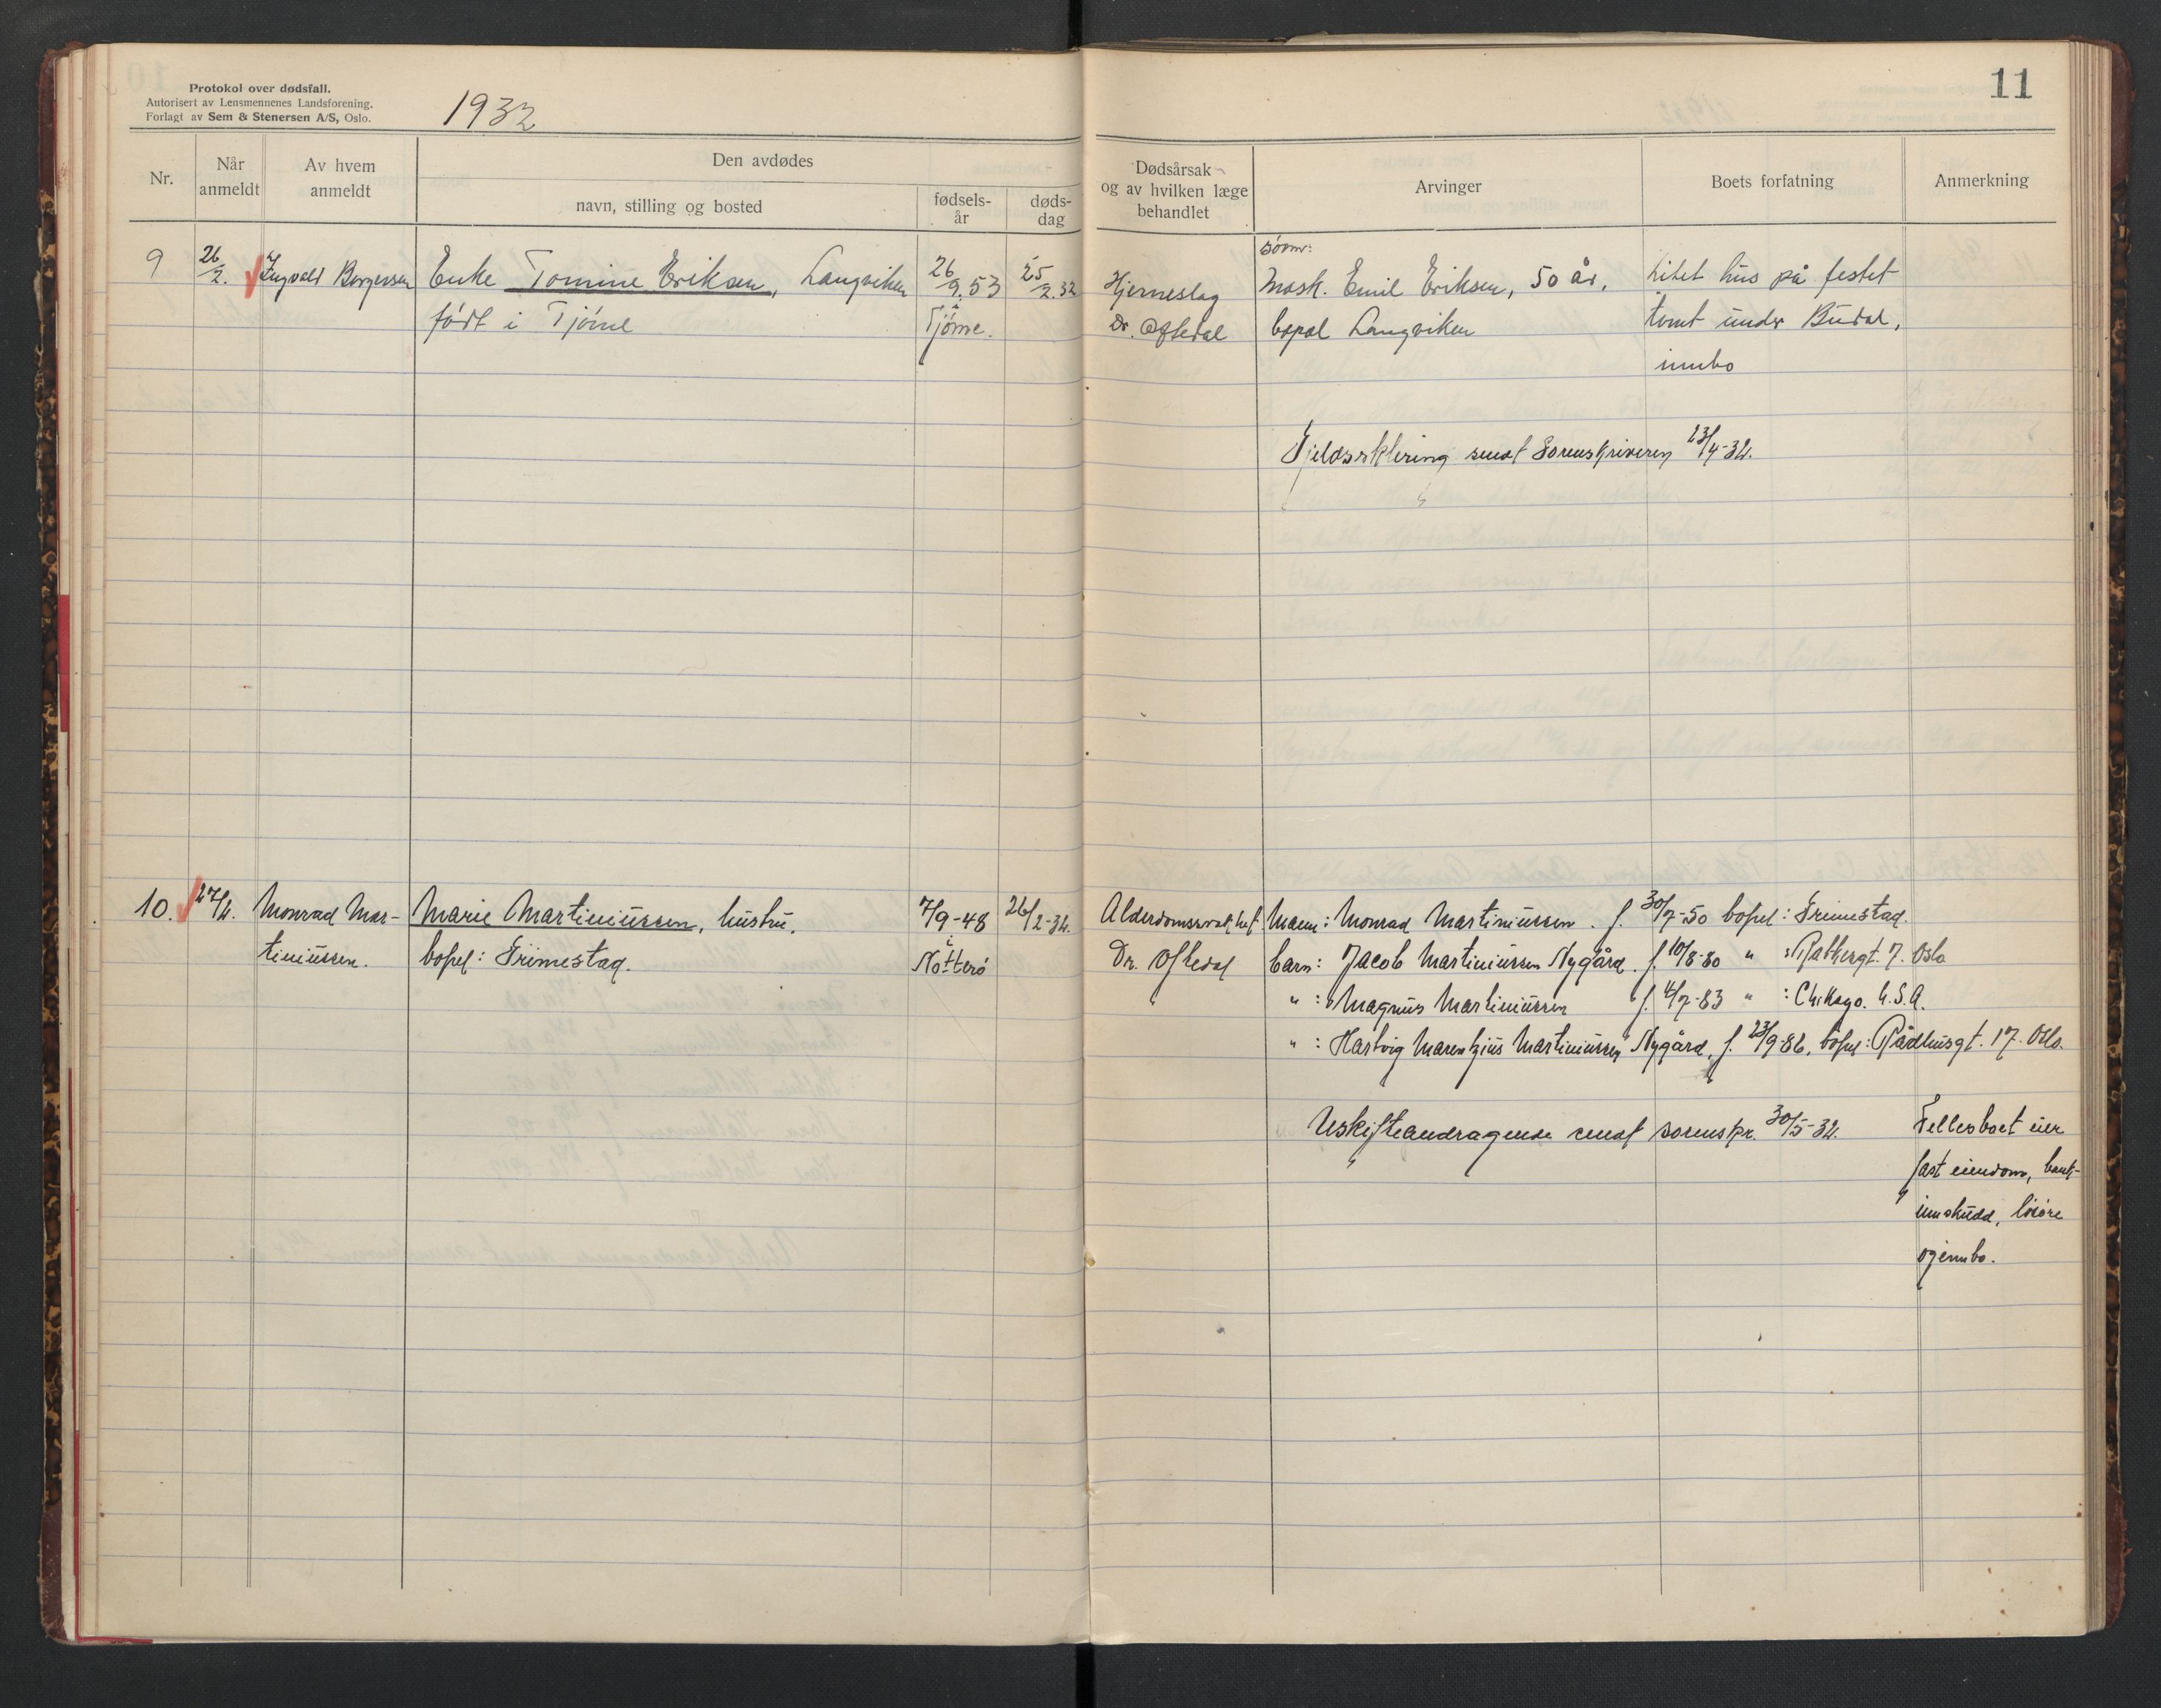 Protokol over dødsfall.
Autorisert av Lensmennenes Landsforening.
Forlagt av Sem & Stenersen A/S, Oslo.
1932
11
Nr.
Når anmeldt
Av hvem anmeldt
Den avdødes
navn, stilling og bosted
fødsels-
år
døds-
dag
Dødsårsak
og av hvilken læge
behandlet
Arvinger
Boets forfatning
Anmerkning
9 26/2. Ingvald Borgersen Enke Tomine Eriksen, Langviken 26/9.53 25/2.32
født i Tjöme i Tjöme.
Hjerneslag
Dr. Oftedal
sönn:
Mask. Emil Eriksen, 50 år.
bopæl Langviken
Litet hus på festet
tomt under Budal,
innbo
Gjeldserklering sendt Sorenskriveren 23/4-32.
10. 27/2. Monrad Mar- Marie Martiniussen, hustru. 7/9-48 26/2-32.
tiniussen. bopel: Grimestad. i Nøtterö
Alderdomssvakhet
Dr. Oftedal
Mann: Monrad Martiniussen. f. 30/7-50 bopel: Grimestad.
barn: Jacob Martiniussen Nygård. f. 10/8-80 " : 7. Oslo
" : Magnus Martiniussen f. 4/7-83 " : Chikago. U.S.A.
" : Hartvig Marentzius Martiniussen Nygård, f. 23/9-86, bopel: Rådhusgt. 17. Oslo.
Uskifteandragende sendt sorenskr. 30/5-32.
Fellesboet eier
fast eiendom, bank-
innskudd, lösöre
og innbo.